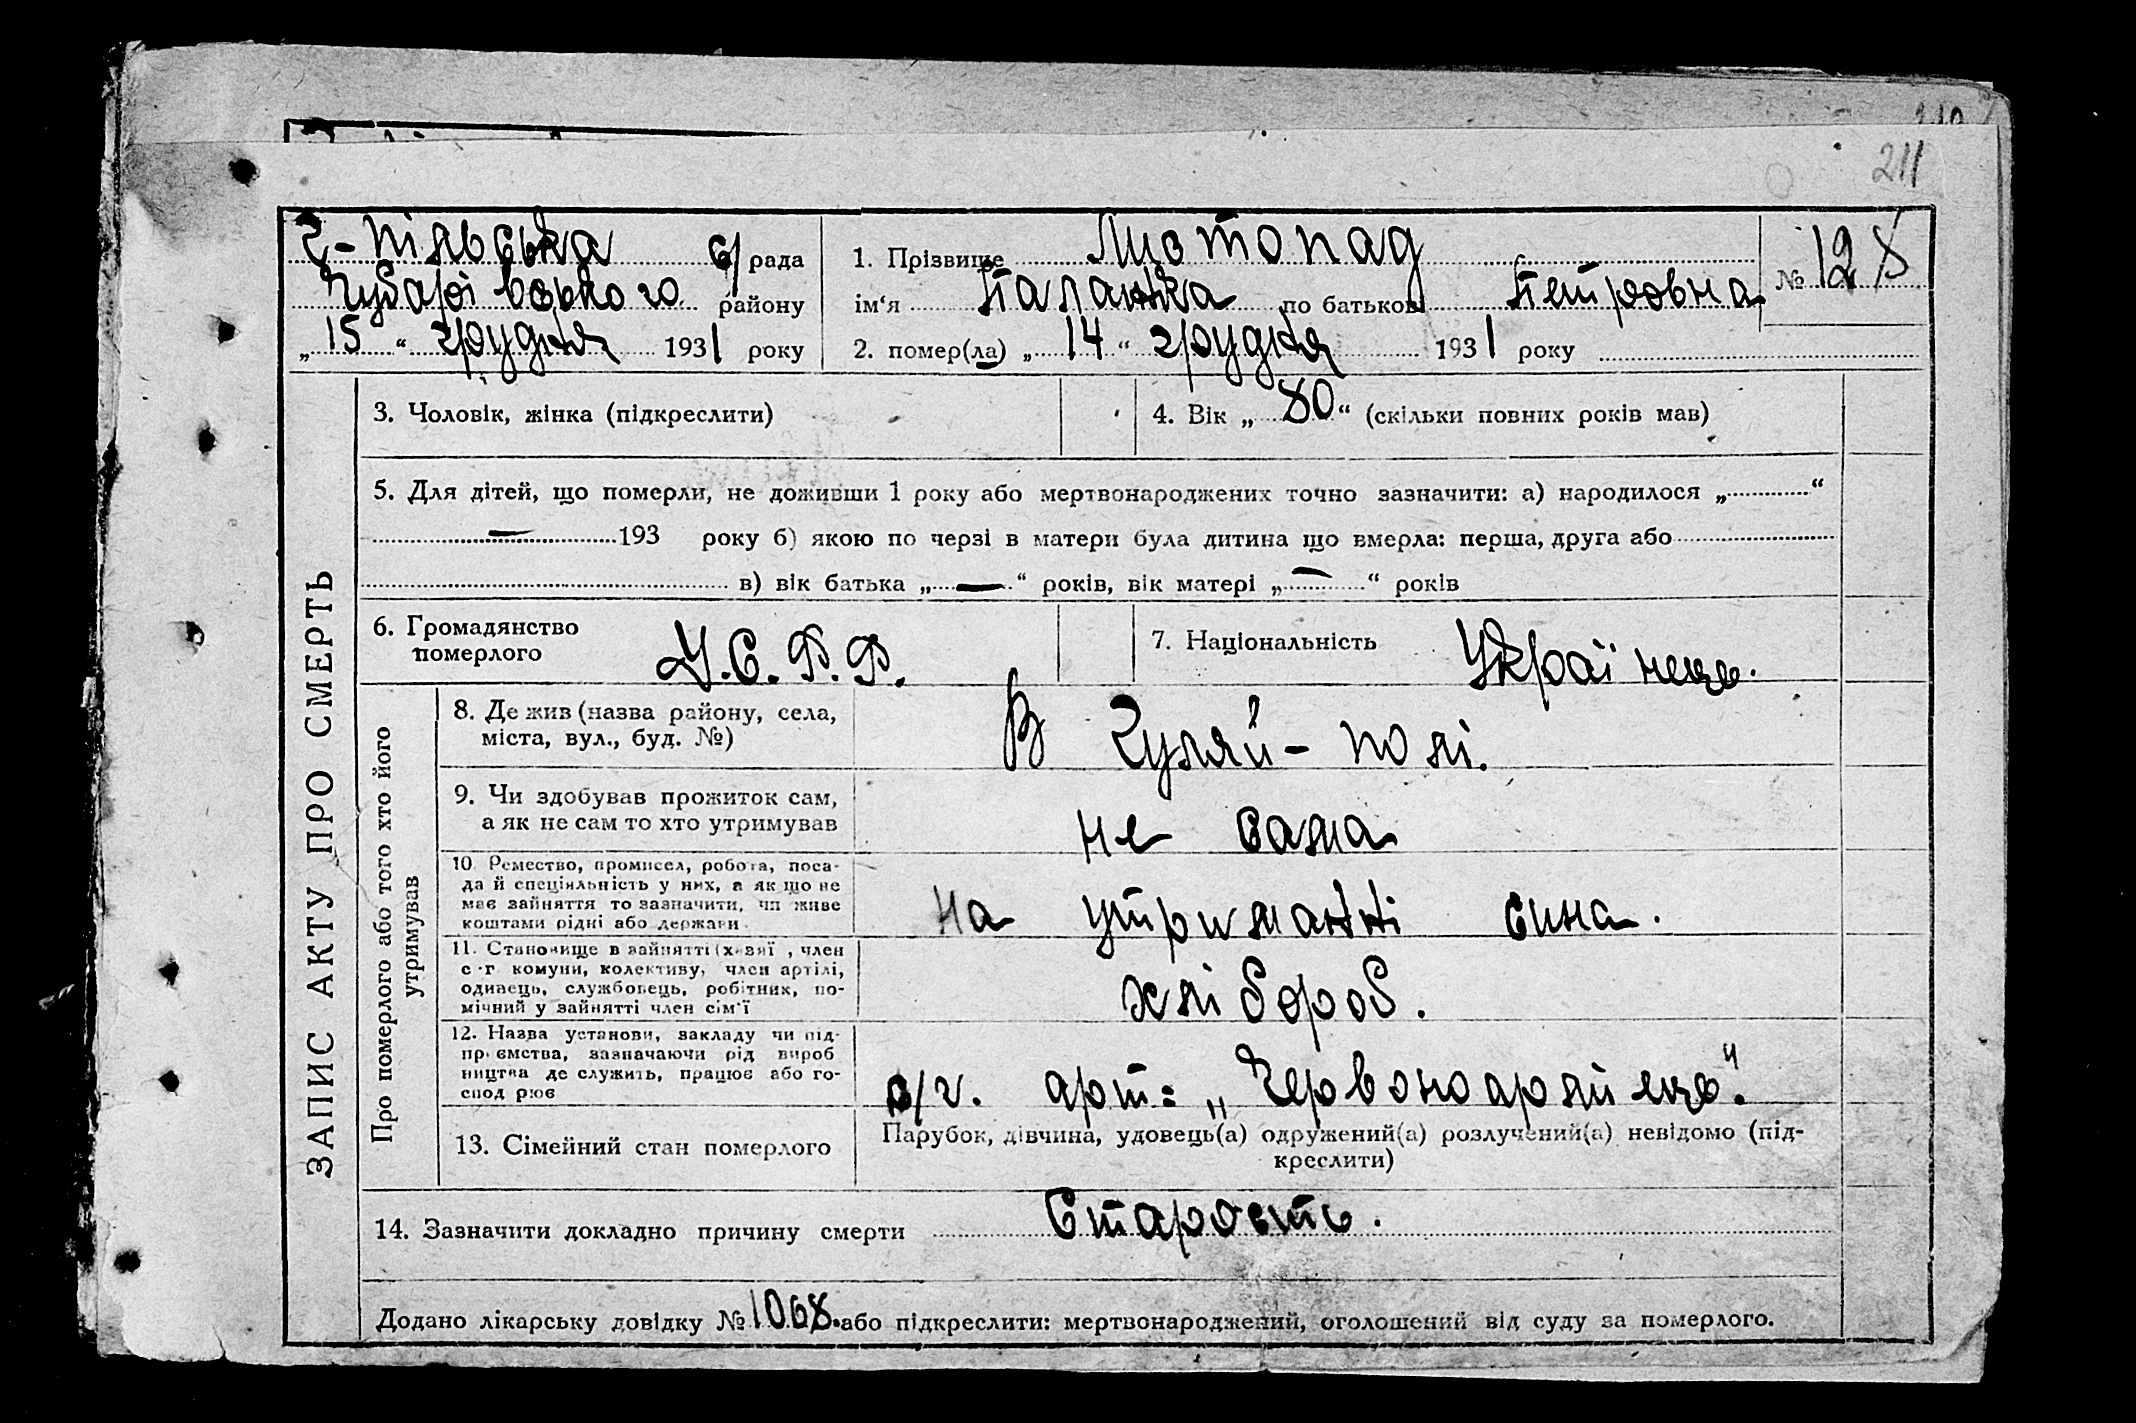 211
Г-Пільська с/рада
Чубарівського району
„15“ грудня 1931 року
1. Прізвище Листопад
ім'я Паланка по батькові Петровна
№ 128
2. помер(ла) „14“ грудня 1931 року
ЗАПИС АКТУ ПРО СМЕРТЬ
3. Чоловік, жінка (підкреслити)
4. Вік „80“ (скільки повних років мав)
5. Для дітей, що померли, не доживши 1 року або мертвонароджених точно зазначити: а) народилося „ “
— 193 року б) якою по черзі в матери була дитина що вмерла: перша, друга або
в) вік батька „—“ років, вік матері „—“ років
6. Громадянство померлого У.С.Р.Р.
7. Національність Українець.
Про померлого або того хто його утримував
8. Де жив (назва району, села,
міста, вул., буд. №)
В Гуляй-полі.
9. Чи здобував прожиток сам,
а як не сам то хто утримував
не сама
10. Ремество, промисел, робота, поса-
да й спеціяльність у них, а як що не
має зайняття то зазначити, чи живе
коштами рідні або держави
на утриманні сина.
11. Становище в зайнятті (хазяї, член
с-г комуни, колективу, член артілі,
одинець, службовець, робітник, по-
мічний у зайнятті член сім'ї
хлібороб.
12. Назва установи, закладу чи під-
приємства, зазначаючи рід вироб
ництва де служить, працює або го-
сподарює
с/г. арт: „Червоноармієць".
13. Сімейний стан померлого
Парубок, дівчина, удовець(а) одружений(а) розлучений(а) невідомо (під-
креслити)
14. Зазначити докладно причину смерти Старость.
Додано лікарську довідку № 1068. або підкреслити: мертвонароджений, оголошений від суду за померлого.